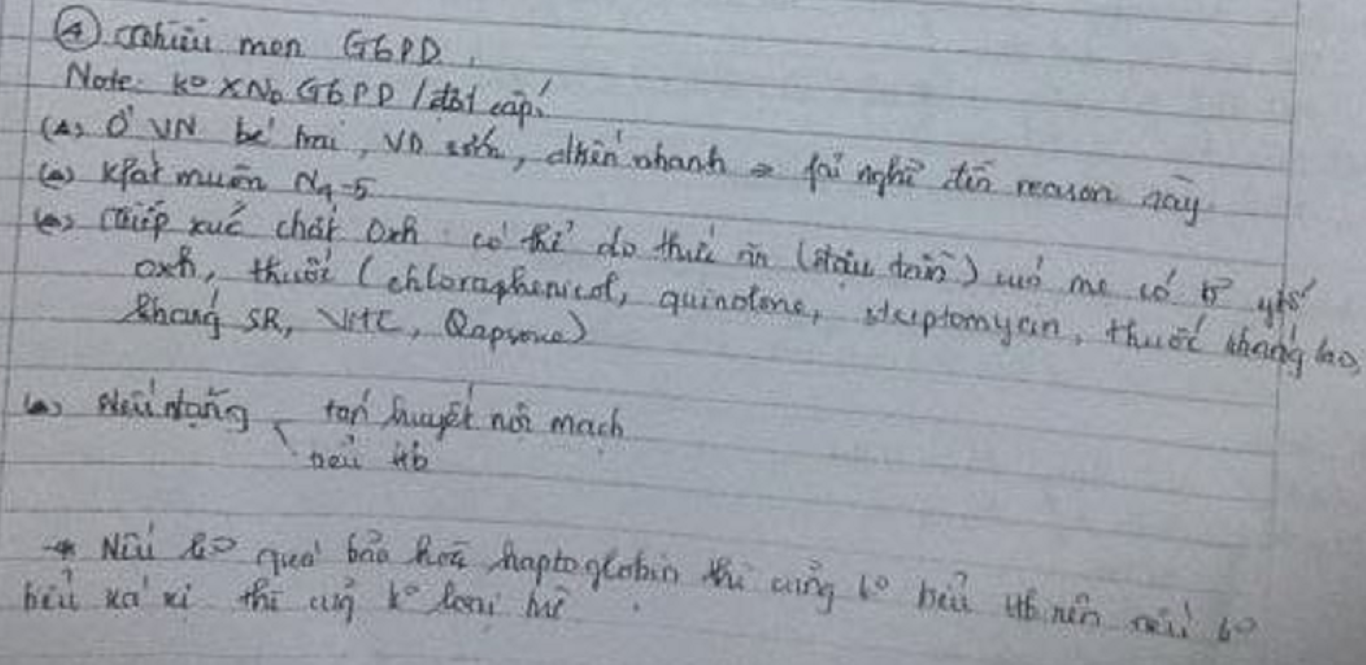 ④ Thiếu men G6PD.
Note: ko XNo G6PD / đợt cấp.
(+) Ở VN bé trai, VD sớm, diễn nhanh → fải nghĩ đến reason này
(+) Kfát muộn N4-5
(+) Tiếp xúc chất oxh: có thể do thức ăn (đậu tằm) mà mẹ có tr yếu
oxh, thuốc (chloraphenicol, quinolone, streptomycin, thuốc kháng lao,
kháng SR, VitC, Dapsone)
(+) Nếu nặng tán huyết nội mạch
tiểu Hb
→ Nếu ko quá bão hoà haptoglobin thì cũng ko tiểu Hb nên nếu ko
tiểu xá xị thì cũg ko loại trừ.